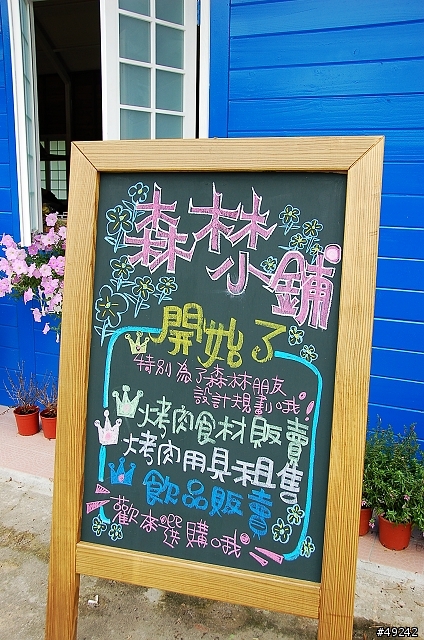 森林
小舖
開始了
特別為了森林朋友
設計規劃哦
烤肉食材販賣
烤肉用具租售
飲品販賣
歡來選購哦
#49242